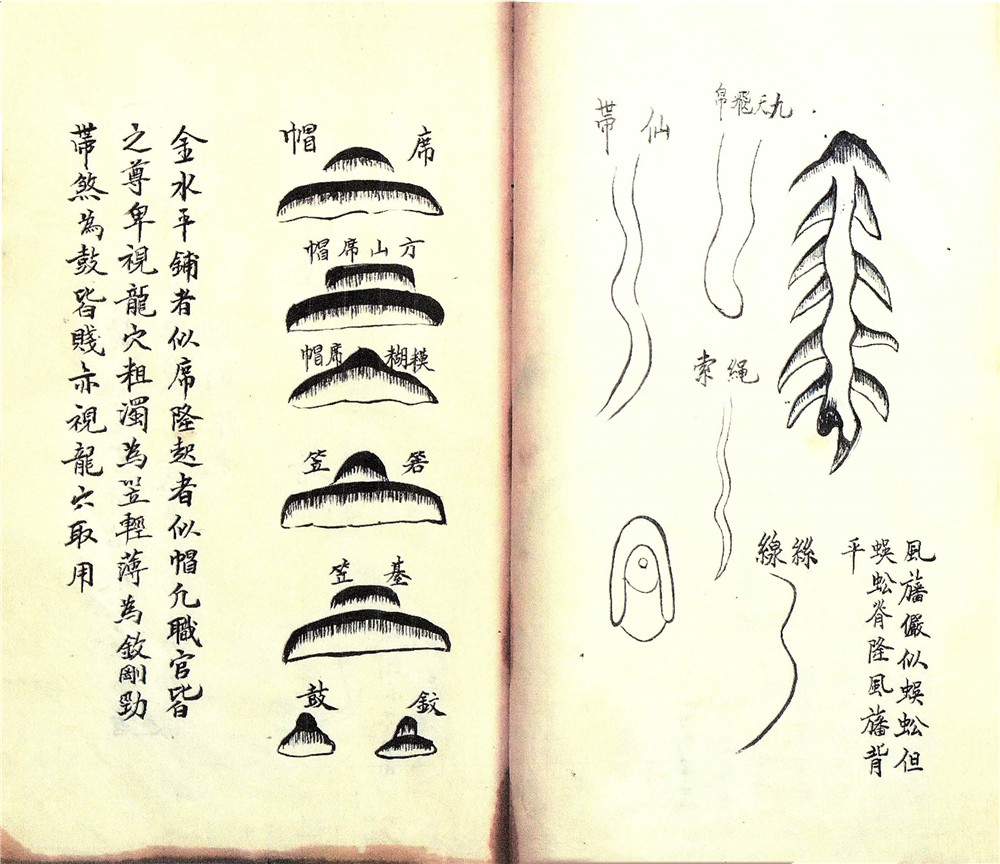 九天飛帛
仙帶
繩索
絲線
風旛儼似蜈蚣但
蜈蚣脊隆風旛背
平
席帽
方山席帽
模糊席帽
箬笠
基笠
鈸
鼓
金水平鋪者似席隆起者似帽凢職官皆
之尊卑視龍穴粗濁為笠輕薄為鈸剛勁
帶煞為鼓皆賤亦視龍穴取用